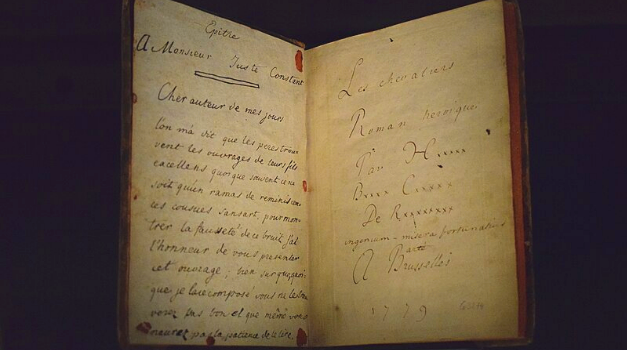 Epitre
A Monsieur Juste Constant
Cher auteur de mes jours
l'on m'a dit que les peres trou
vent les ouvrages de leurs fils
excellens quoique souvent ce ne
soit qu'un ramas de reminiscen
ces cousues sans art, pour mon
trer la fausseté de ce bruit j'ai
l'honneur de vous presenter
cet ouvrage; bien sur
que je l'aie composé vous ne le trou
verez pas bon et que même vous
n'aurez pas la patience de le lire.
Les chevaliers
Roman heroique
Par Hxxxxx
Bxxxx Cxxxxx
De Rxxxxxxx
ingenium misera fortunatius
arte
A Brusselles
1779